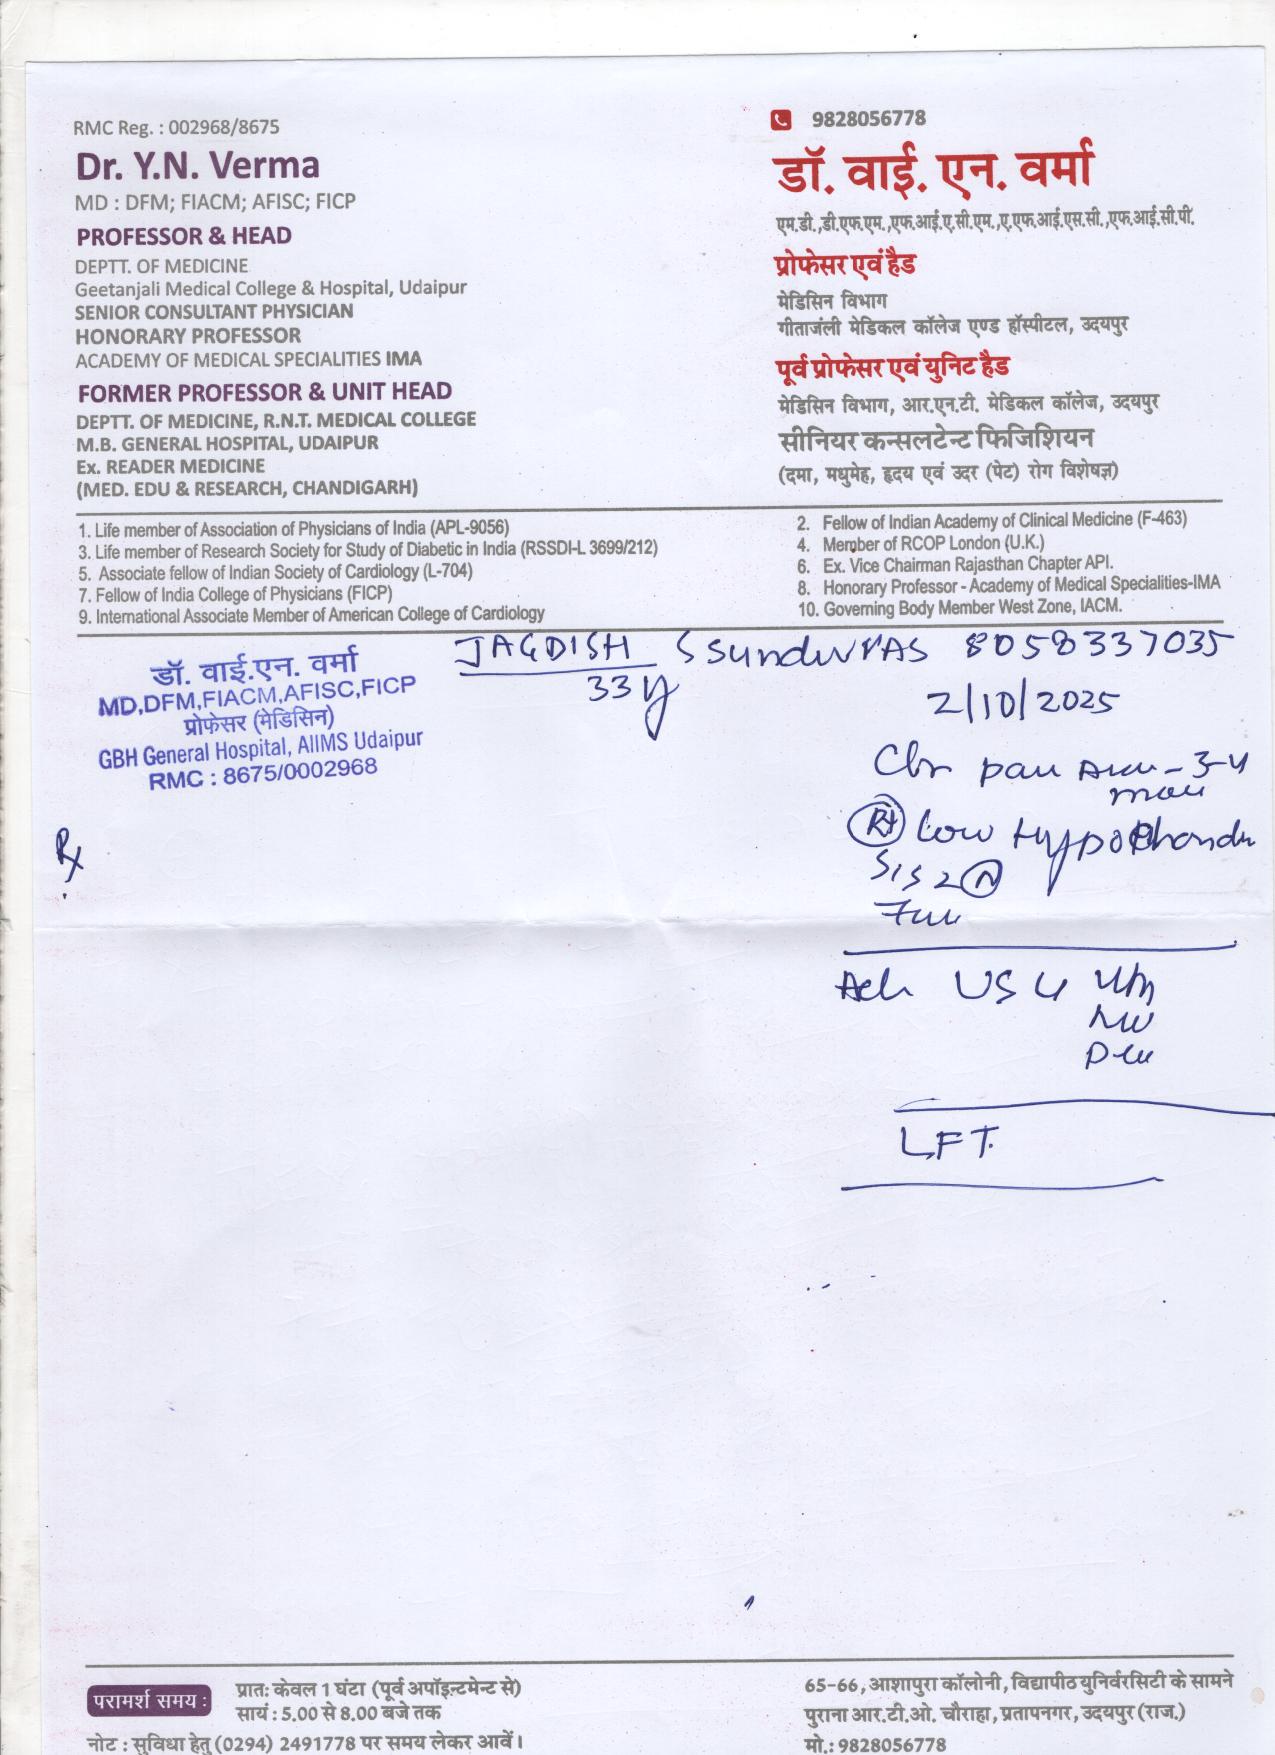 RMC Reg. : 002968/8675
Dr. Y.N. Verma
MD : DFM; FIACM; AFISC; FICP
PROFESSOR & HEAD
DEPTT. OF MEDICINE
Geetanjali Medical College & Hospital, Udaipur
SENIOR CONSULTANT PHYSICIAN
HONORARY PROFESSOR
ACADEMY OF MEDICAL SPECIALITIES IMA
FORMER PROFESSOR & UNIT HEAD
DEPTT. OF MEDICINE, R.N.T. MEDICAL COLLEGE
M.B. GENERAL HOSPITAL, UDAIPUR
Ex. READER MEDICINE
(MED. EDU & RESEARCH, CHANDIGARH)
9828056778
डॉ. वाई. एन. वर्मा
एम.डी.,डी.एफ.एम.,एफ.आई.ए.सी.एम.,ए.एफ.आई.एस.सी.,एफ.आई.सी.पी.
प्रोफेसर एवं हैड
मेडिसिन विभाग
गीतांजली मेडिकल कॉलेज एण्ड हॉस्पीटल, उदयपुर
पूर्व प्रोफेसर एवं युनिट हैड
मेडिसिन विभाग, आर.एन.टी. मेडिकल कॉलेज, उदयपुर
सीनियर कन्सलटेन्ट फिजिशियन
(दमा, मधुमेह, हृदय एवं उदर (पेट) रोग विशेषज्ञ)
1. Life member of Association of Physicians of India (APL-9056)
2. Fellow of Indian Academy of Clinical Medicine (F-463)
3. Life member of Research Society for Study of Diabetic in India (RSSDI-L 3699/212)
4. Member of RCOP London (U.K.)
5. Associate fellow of Indian Society of Cardiology (L-704)
6. Ex. Vice Chairman Rajasthan Chapter API.
7. Fellow of India College of Physicians (FICP)
8. Honorary Professor - Academy of Medical Specialities-IMA
9. International Associate Member of American College of Cardiology
10. Governing Body Member West Zone, IACM.
डॉ. वाई.एन. वर्मा
MD,DFM,FIACM,AFISC,FICP
प्रोफेसर (मेडिसिन)
GBH General Hospital, AIIMS Udaipur
RMC : 8675/0002968
JAGDISH 8058337035
33 y
2/10/2025
Rx
3-4
Rt low
S1S2 N
US
LFT.
परामर्श समय :
प्रात: केवल 1 घंटा (पूर्व अपॉइन्टमेन्ट से)
सायं : 5.00 से 8.00 बजे तक
नोट : सुविधा हेतु (0294) 2491778 पर समय लेकर आवें।
65-66, आशापुरा कॉलोनी, विद्यापीठ युनिर्वरसिटी के सामने
पुराना आर.टी.ओ. चौराहा, प्रतापनगर, उदयपुर (राज.)
मो.: 9828056778